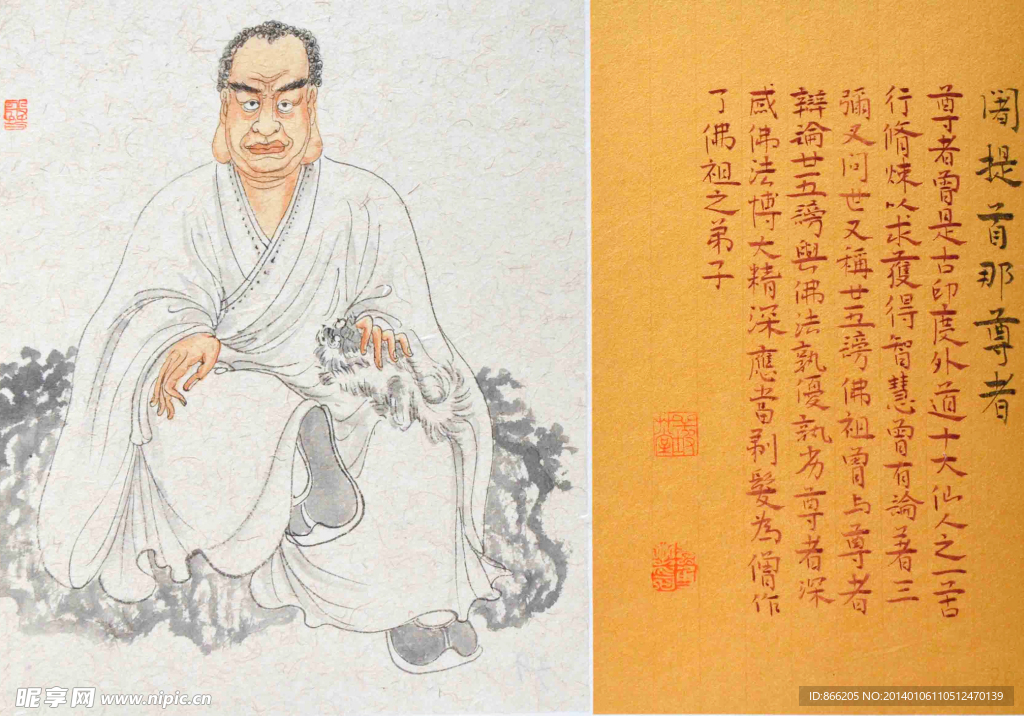 闍提首那尊者
尊者曾是古印度外道十大仙人之一苦
行脩煉以求獲得智慧曾有論著三
彌叉问世又稱廿五謗佛祖曾与尊者
辯論廿五謗與佛法孰優孰劣尊者深
感佛法博大精深應當剃髮為僧作
了佛祖之弟子
昵享网 www.nipic.cn
ID:866205 NO:20140106110512470139